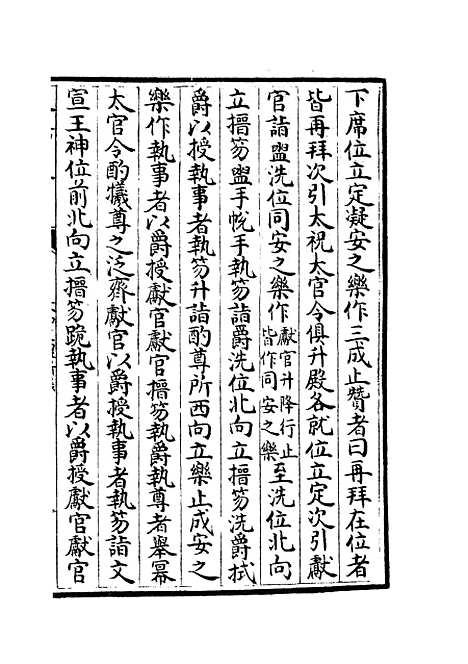 下席位立定凝安之樂作三成止贊者曰再拜在位者
皆再拜次引太祝太官令俱升殿各就位立定次引獻
官詣盥洗位同安之樂作獻官升降行止皆作同安之樂至洗位北向
立搢笏盥手帨手執笏詣爵洗位北向立搢笏洗爵拭
爵以授執事者執笏升詣酌尊所西向立樂止成安之
樂作執事者以爵授獻官獻官搢笏執爵執尊者舉冪
太官令酌犧尊之泛齊獻官以爵授執事者執笏詣文
宣王神位前北向立搢笏跪執事者以爵授獻官獻官